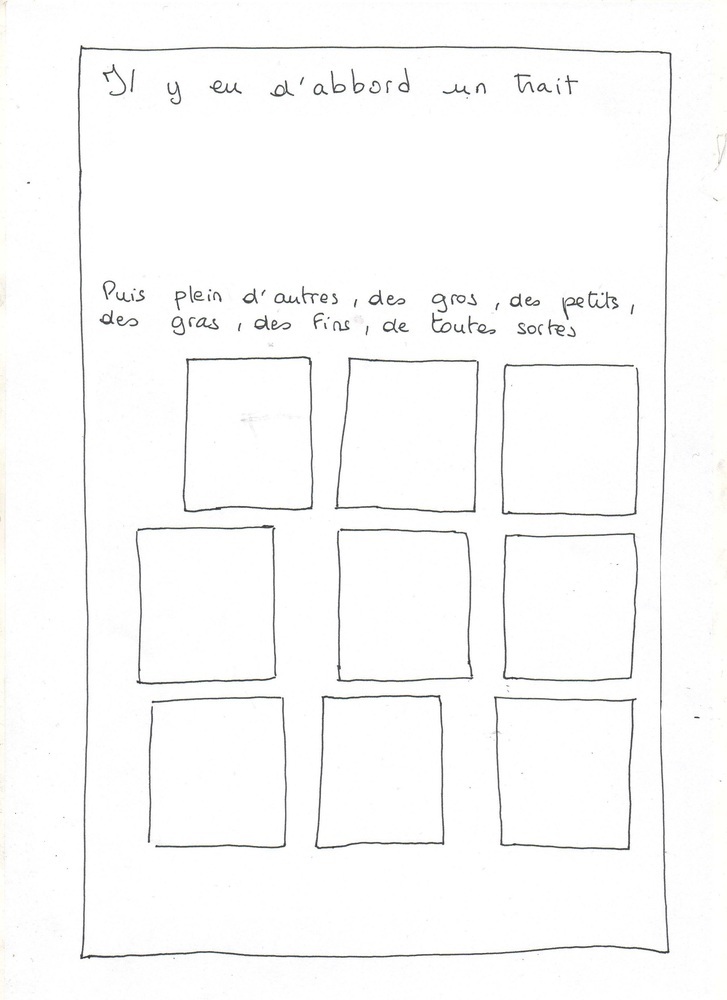 Il y eu d'abbord un trait
Puis plein d'autres, des gros, des petits,
des gras, des fins, de toutes sortes